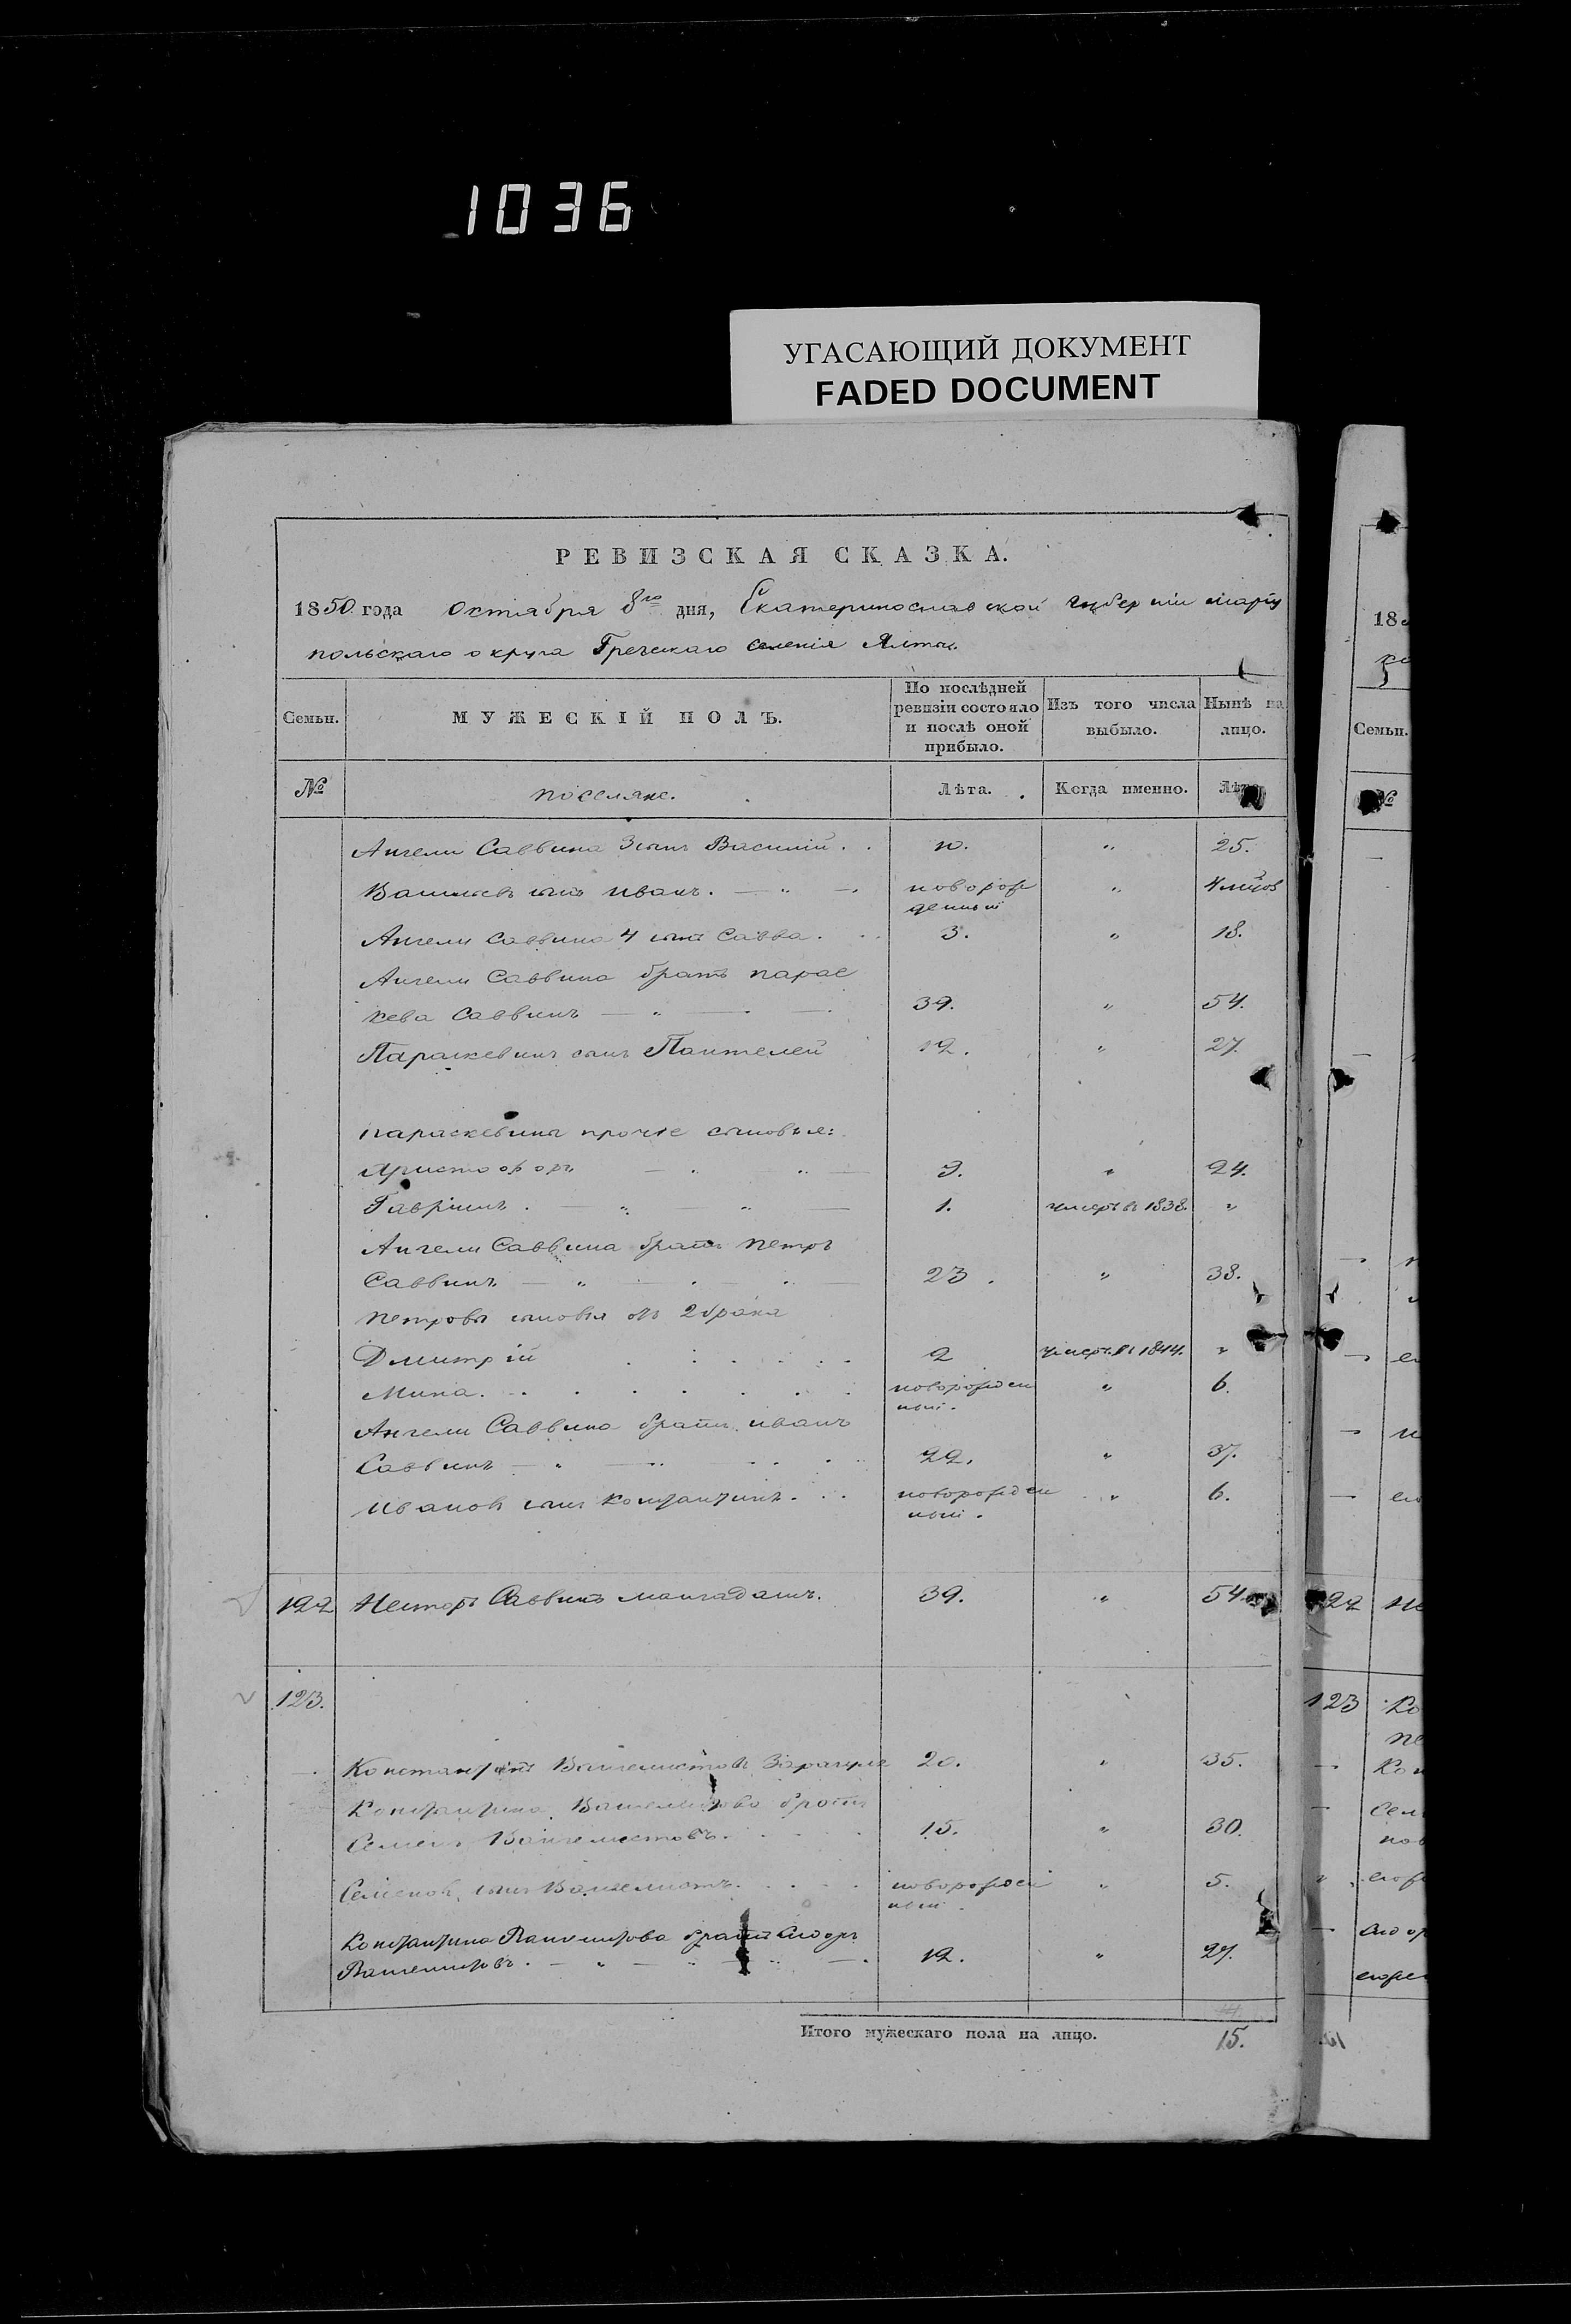 1036
УГАСАЮЩИЙ ДОКУМЕНТ
FADED DOCUMENT
РЕВИЗСКАЯ СКАЗКА.
1850 года Октября 8го дня, Екатеринославской губерніи Маріу
польскаго округа Греческаго селенія Ялты.
Семьи. МУЖЕСКІЙ ПОЛЪ. По послѣдней ревизіи состояло и послѣ оной прибыло. Изъ того числа выбыло. Нынѣ на лицо.
№ поселяне. Лѣта. Когда именно. Лѣта.
Ангели Саввина 3 сынъ Василій. 10. " 25.
сынъ Иванъ. — " — новорож " 4
денный
Ангели Саввина 4 сынъ Савва. 3. " 18.
Ангели Саввина братъ Парас
кева Саввинъ — " — 39. " 54.
Параскевинъ сынъ Пантелей 12. " 27.
Параскевины прочіе сыновья:
Христофоръ — " — 9. " 24.
Гавріилъ. — " — " — 1. умеръ въ 1838. "
Ангели Саввина братъ Петръ
Саввинъ — " — 23. " 38.
Петровы сыновья отъ 2 брака
Дмитрій 2 умеръ въ 1844. "
Мина. новорожден " 6.
ный.
Ангели Саввина братъ Иванъ
Саввинъ " — 22. " 37.
Ивановъ сынъ Константинъ. новорожден " 6.
ный.
122 Несторъ Саввинъ 39. " 54
123.
Константинъ 20. " 35.
Константина братъ
Семенъ 15. " 30.
Семеновъ сынъ новорожден " 5.
ный.
Константина братъ Сидоръ
12. " 27.
Итого мужескаго пола на лицо. 15.
18
Семьи.
№
122 Не
123 Ко